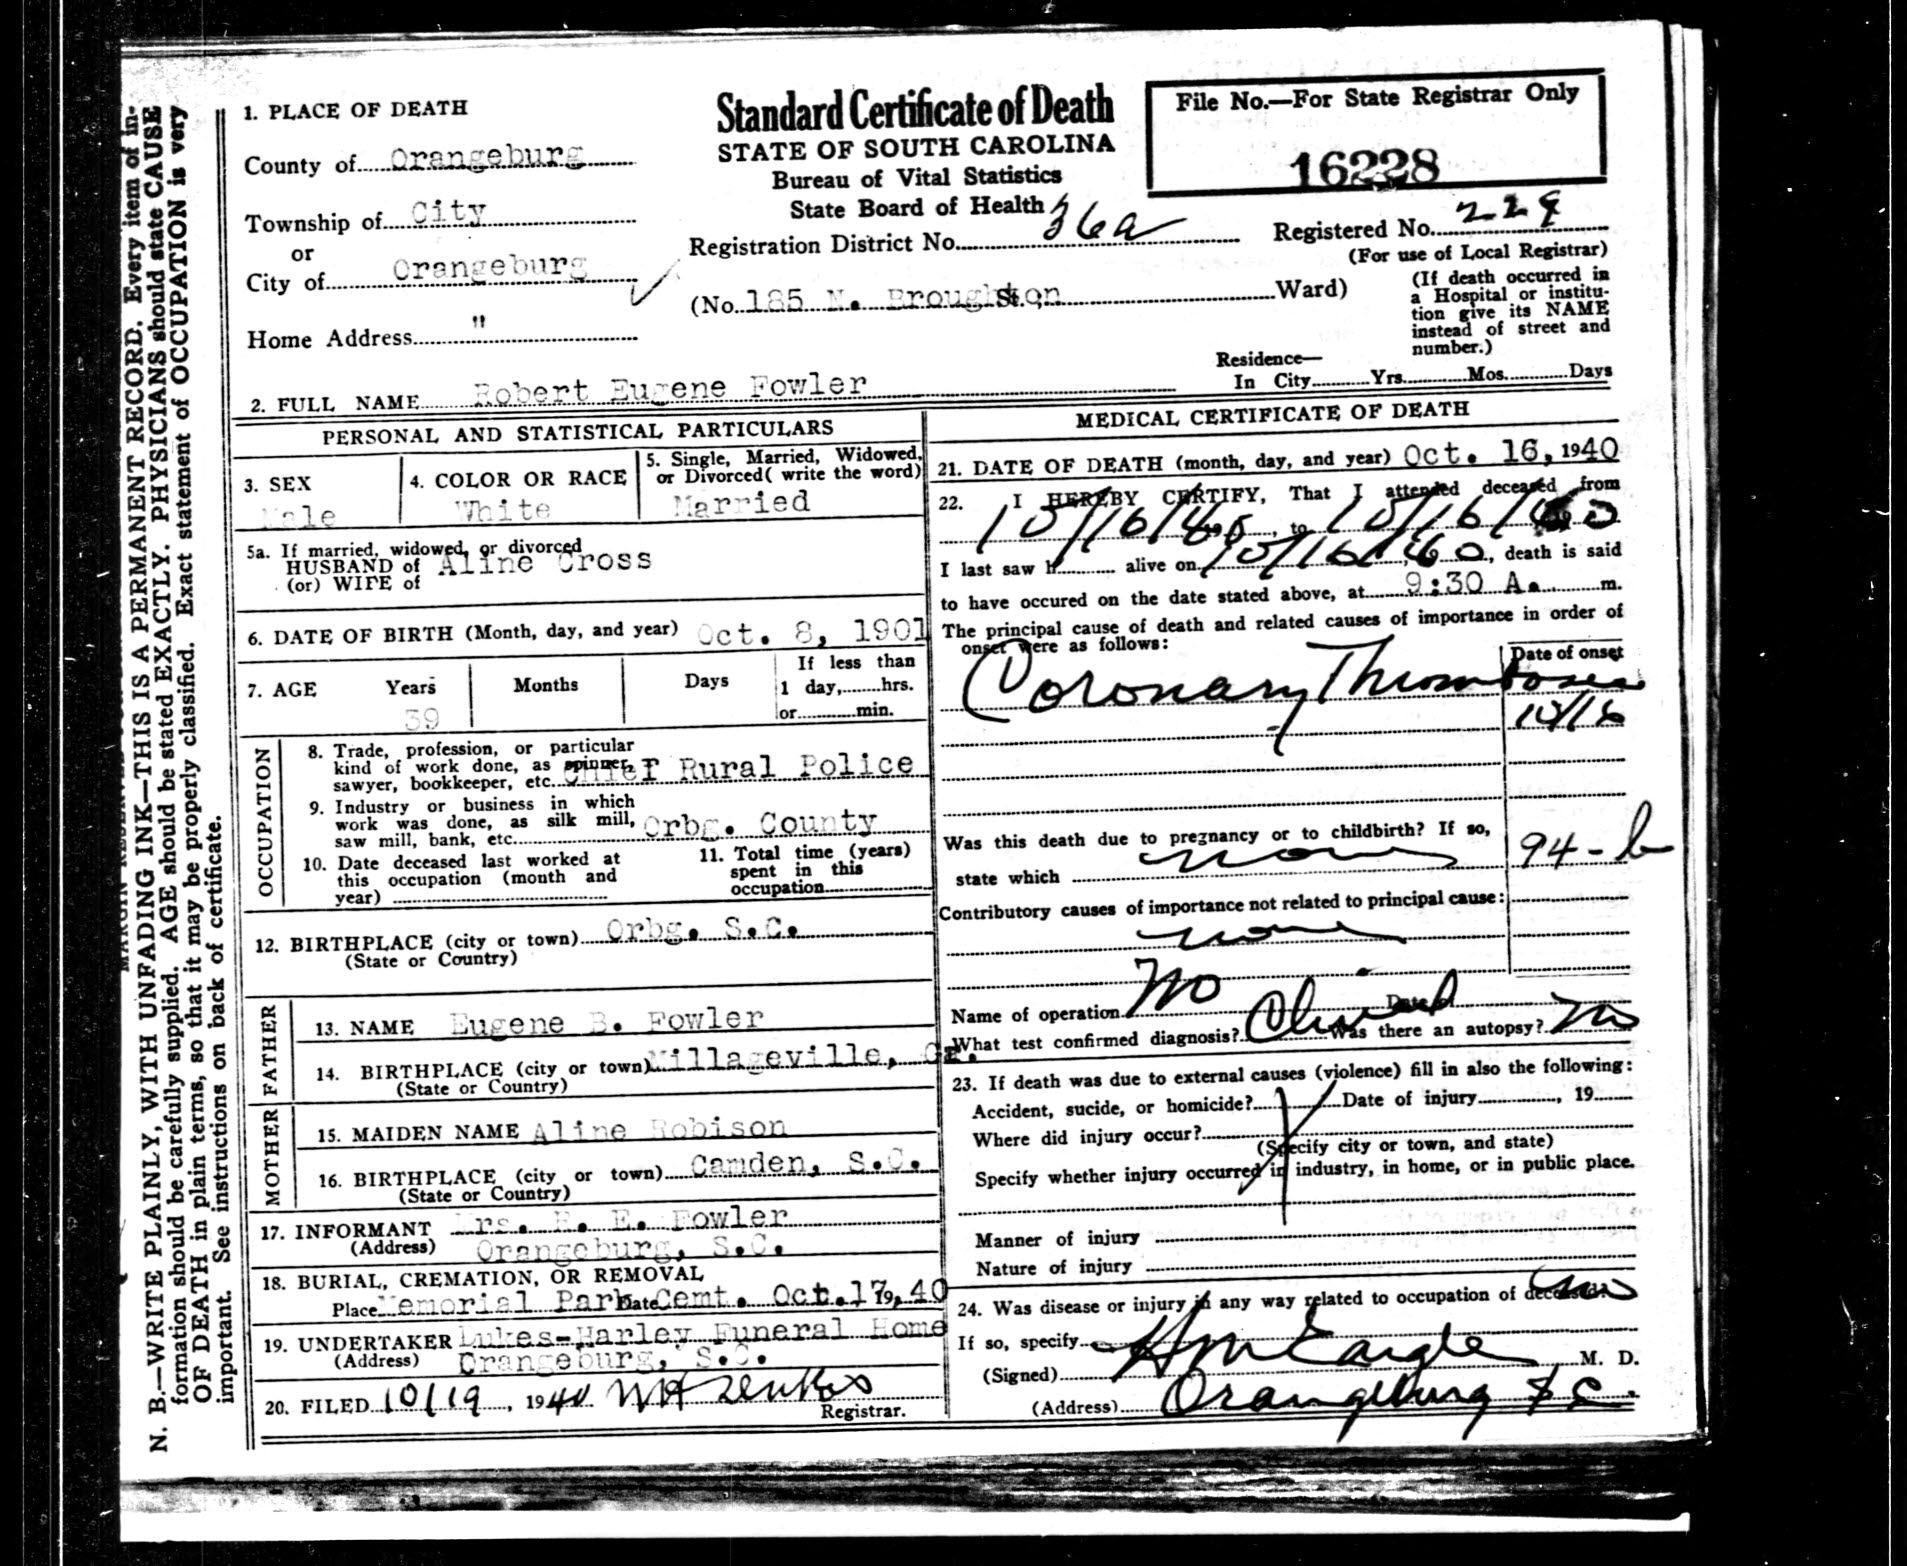 N. B.—WRITE PLAINLY, WITH UNFADING INK—THIS IS A PERMANENT RECORD. Every item of in-
formation should be carefully supplied. AGE should be stated EXACTLY. PHYSICIANS should state CAUSE
OF DEATH in plain terms, so that it may be properly classified. Exact statement of OCCUPATION is very
important. See instructions on back of certificate.
Standard Certificate of Death
STATE OF SOUTH CAROLINA
Bureau of Vital Statistics
State Board of Health
File No.—For State Registrar Only
16228
1. PLACE OF DEATH
County of Orangeburg
Township of City
or
City of Orangeburg
Home Address "
Registration District No. 36a
Registered No. 229
(For use of Local Registrar)
(No. 185 N. Broughton St.; Ward)
(If death occurred in
a Hospital or institu-
tion give its NAME
instead of street and
number.)
Residence—
In City Yrs. Mos. Days
2. FULL NAME Robert Eugene Fowler
PERSONAL AND STATISTICAL PARTICULARS
3. SEX
Male
4. COLOR OR RACE
White
5. Single, Married, Widowed,
or Divorced( write the word)
Married
5a. If married, widowed, or divorced
HUSBAND of Aline Cross
(or) WIFE of
6. DATE OF BIRTH (Month, day, and year) Oct. 8, 1901
7. AGE Years Months Days
39
If less than
1 day, hrs.
or min.
OCCUPATION
8. Trade, profession, or particular
kind of work done, as spinner,
sawyer, bookkeeper, etc. Chief Rural Police
9. Industry or business in which
work was done, as silk mill,
saw mill, bank, etc. Orbg. County
10. Date deceased last worked at
this occupation (month and
year)
11. Total time (years)
spent in this
occupation
12. BIRTHPLACE (city or town) Orbg. S.C.
(State or Country)
FATHER
13. NAME Eugene B. Fowler
14. BIRTHPLACE (city or town) Millageville, Ga.
(State or Country)
MOTHER
15. MAIDEN NAME Aline Robison
16. BIRTHPLACE (city or town) Camden, S.C.
(State or Country)
17. INFORMANT Mrs. R. E. Fowler
(Address) Orangeburg, S.C.
18. BURIAL, CREMATION, OR REMOVAL
Place Memorial Park Cemt. Date Oct. 17, 1940
19. UNDERTAKER Dukes-Harley Funeral Home
(Address) Orangeburg, S.C.
20. FILED 10/19, 1940
Registrar.
MEDICAL CERTIFICATE OF DEATH
21. DATE OF DEATH (month, day, and year) Oct. 16, 1940
22. I HEREBY CERTIFY, That I attended deceased from
10/16/40 to 10/16/40
I last saw h alive on 10/16/40, death is said
to have occured on the date stated above, at 9:30 A. m.
The principal cause of death and related causes of importance in order of
onset were as follows:
Date of onset
Coronary Thrombosis
10/16
Was this death due to pregnancy or to childbirth? If so,
state which none
94-b
Contributory causes of importance not related to principal cause:
none
Name of operation No Date of
What test confirmed diagnosis? Clinical Was there an autopsy? No
23. If death was due to external causes (violence) fill in also the following:
Accident, sucide, or homicide? Date of injury , 19
Where did injury occur?
(Specify city or town, and state)
Specify whether injury occurred in industry, in home, or in public place.
Manner of injury
Nature of injury
24. Was disease or injury in any way related to occupation of deceased? no
If so, specify
(Signed) H M Eargle, M. D.
(Address) Orangeburg S C.